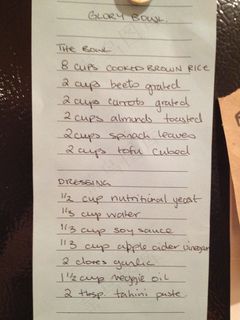 GLORY BOWL
THE BOWL
8 CUPS COOKED BROWN RICE
2 cups beets grated
2 cups carrots grated
2 cups almonds toasted
2 cups spinach leaves
2 cups tofu cubed
DRESSING
1/2 cup nutritional yeast
1/3 cup water
1/3 cup soy sauce
1/3 cup apple cider vinegar
2 cloves garlic
1 1/2 cup veggie oil
2 tbsp. tahini paste